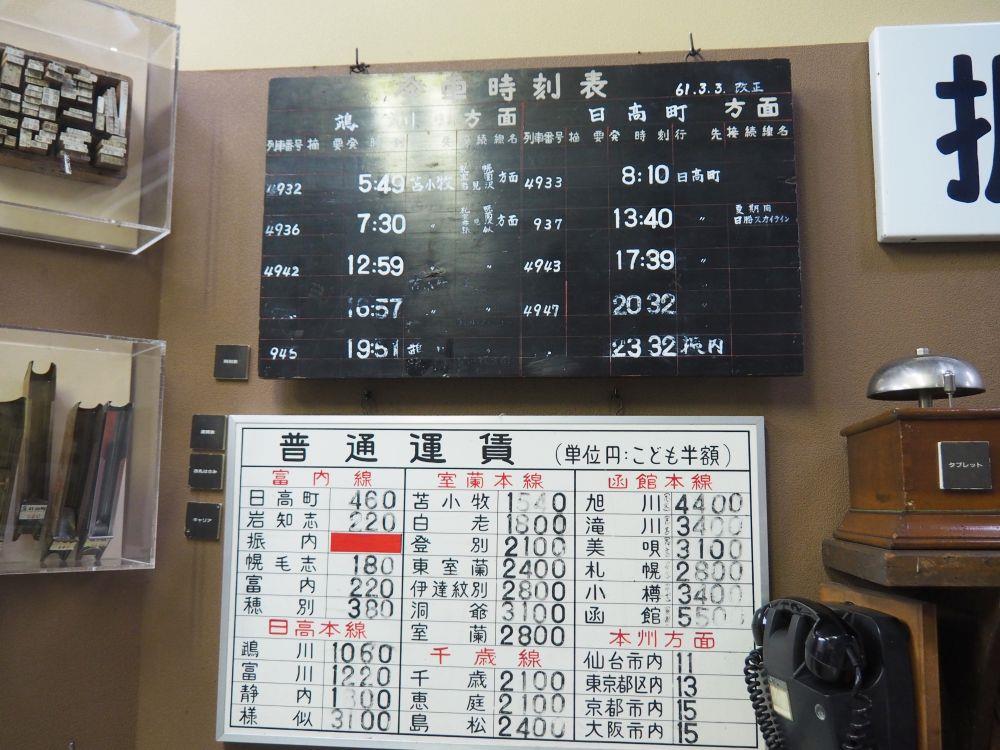 時刻表 61.3.3. 改正
鵡川方面 日高町方面
列車番号 摘要 発時刻 先 接続線名 列車番号 摘要 発時刻 行先 接続線名
4932 5:49 苫小牧 方面 4933 8:10 日高町
4936 7:30 〃 方面 937 13:40 〃 夏期用 日勝スカイライン
4942 12:59 〃 4943 17:39 〃
16:57 〃 4947 20 32 〃
945 19:51 鵡川 〃 〃 23 32 振内
振
時刻表
運賃表
改札ばさみ
キャリア
タブレット
普通運賃 (単位円:こども半額)
富内線 室蘭本線 函館本線
日高町 460 苫小牧 1540 旭川 4400
岩知志 220 白老 1800 滝川 3400
振内 登別 2100 美唄 3100
幌毛志 180 東室蘭 2400 札幌 2800
富内 220 伊達紋別 2800 小樽 3400
穂別 380 洞爺 3100 函館 550
日高本線 室蘭 2800 本州方面
鵡川 1060 千歳線 仙台市内 11
富川 1220 千歳 2100 東京都区内 13
静内 1300 恵庭 2100 京都市内 15
様似 3100 島松 2400 大阪市内 15